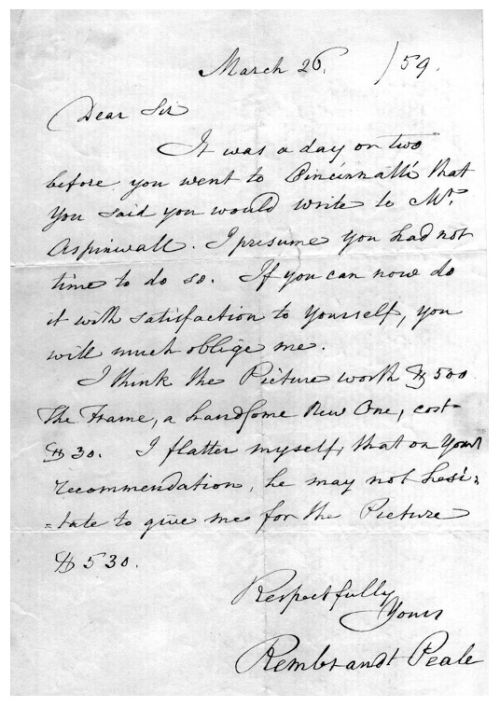 March 26. /59.
Dear Sir
It was a day or two
before you went to Cincinnatti that
you said you would write to Mr.
Aspinwall. I presume you had not
time to do so. If you can now do
it with satisfaction to yourself, you
will much oblige me.
I think the Picture worth $500
The Frame, a handsome New One, cost
$30. I flatter myself, that on Your
recommendation, he may not hesi=
=tate to give me for the Picture
$530.
Respectfully
Yours
Rembrandt Peale